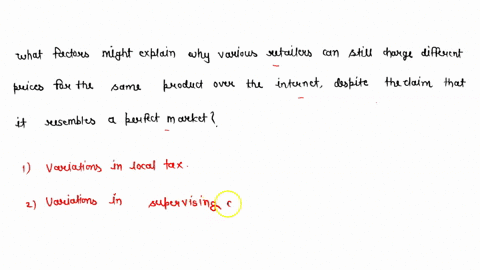 What factors might explain why various retailers can still charge different
prices for the same product over the internet, despite the claim that
it resembles a perfect market?
1) Variations in local tax.
2) Variations in supervising c